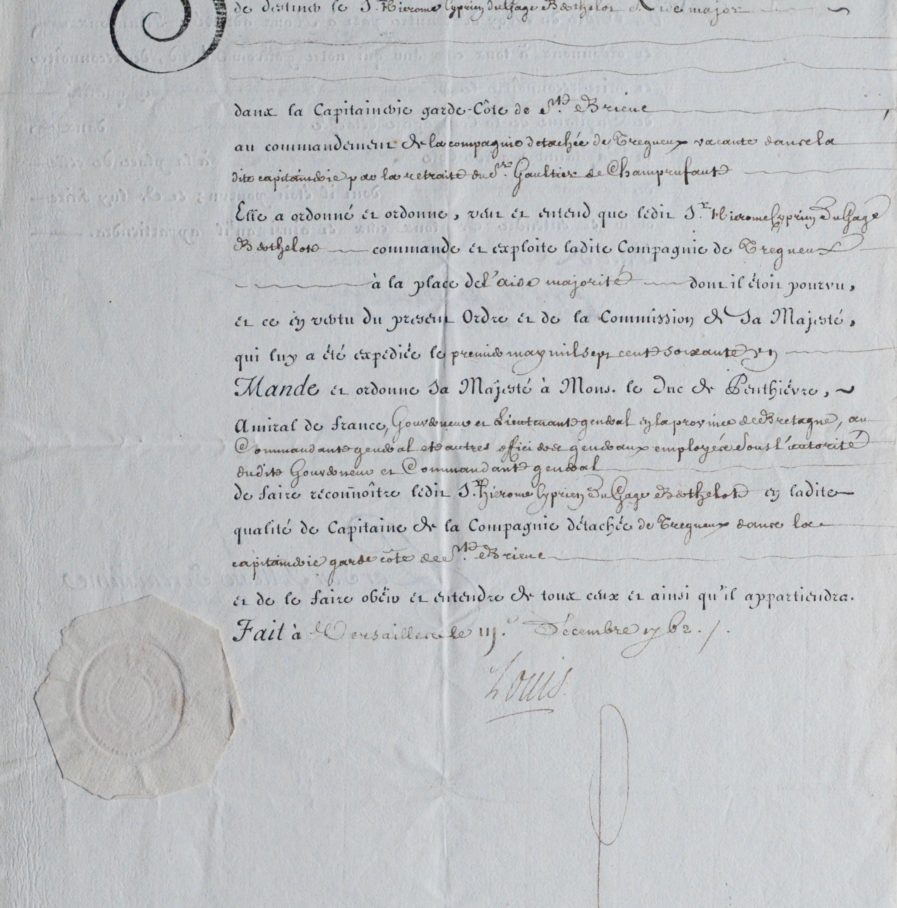 de destiner le S. Hierome Cyprien Du Chage Berthelot Aide major
dans la Capitainerie garde-Côte de St. Brieuc
au commandement de la compagnie detachée de Tregueux vacante dans la
dite capitainerie par la retraite du Sr. Gaultier de
Elle a ordonné et ordonne, veut et entend que ledit Sr. Hierome Cyprien Du Chage
Berthelot commande et exploite ladite Compagnie de Tregueux
à la place de l'aide majorité dont il étoit pourvu,
et ce en vertu du present Ordre et de la Commission de Sa Majesté,
qui luy a été expediée le premier may mil sept cent soixante
Mande et ordonne Sa Majesté à Mons. le Duc de Penthiévre,
Amiral de france, Gouverneur et Lieutenant general en la province de Bretagne, au
Commandant general et autres officiers generaux employés sous l'autorité
dudit Gouverneur et Commandant general
de faire reconnoître ledit S. Hierome Cyprien Du Chage Berthelot en ladite
qualité de Capitaine de la Compagnie détachée de Tregueux dans la
capitainerie garde côte de St. Brieuc
et de le faire obéir et entendre de tous ceux et ainsi qu'il appartiendra.
Fait à Versailles le Décembre 1762.
Louis